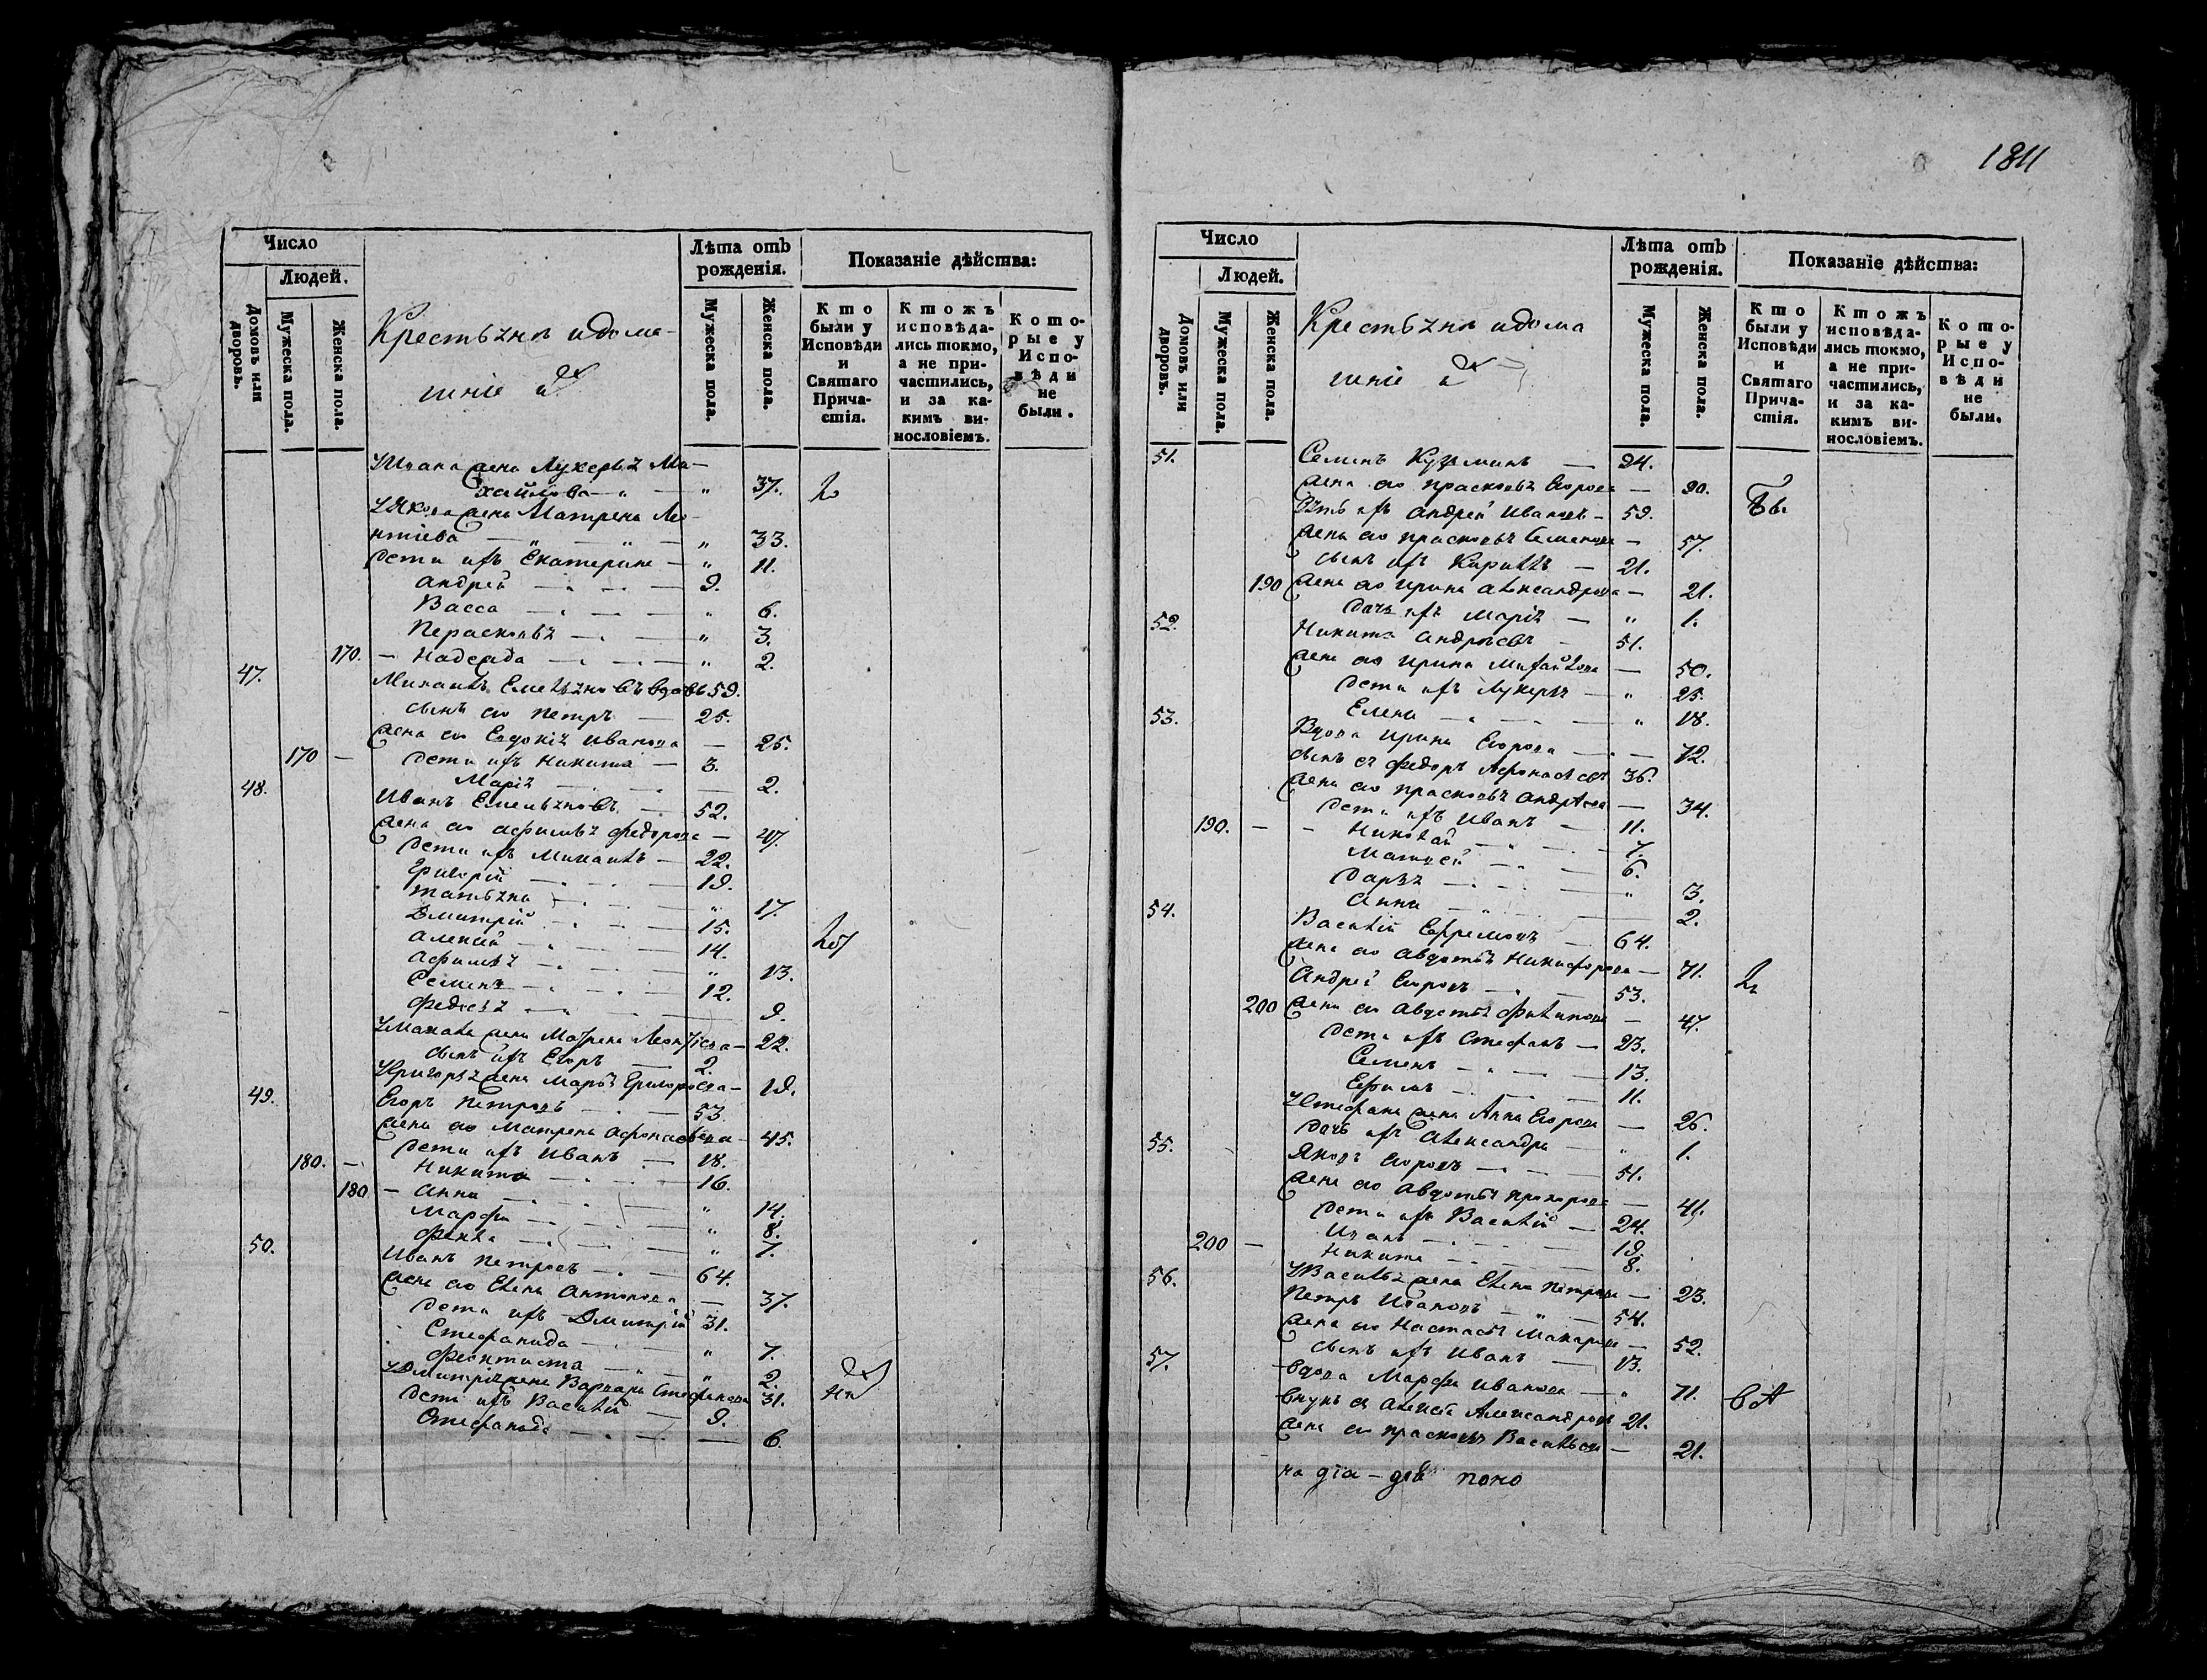 1811
Число
Людей.
Домовъ или дворовъ.
Мужеска пола.
Женска пола.
Крестьяне и дома-
шніе ихъ
Лѣта отъ рожденія.
Мужеска пола.
Женска пола.
Показаніе дѣйства:
Кто были у Исповѣди и Святаго Причастія.
Ктожъ исповѣдались токмо, а не причастились, и за какимъ винословіемъ.
Которые у Исповѣди не были.
У Ивана жена Лукерья Ми-
хайлова — " 37.
У Якова жена Матрена Ле-
нтіева — " 33.
Дети ихъ Екатерина — " 11.
Андрей — 9.
Васса — " 6.
Перасковья — " 3.
170. — Надежда — " 2.
47. Михаилъ Емельяновъ вдовъ 59.
сынъ его Петръ — 25.
жена его Евдокія Иванова — 25.
170 — Дети ихъ Никита — 3.
Марія — 2.
48. Иванъ Емельяновъ — 52.
жена его Афимья Федорова — 47.
Дети ихъ Михаилъ — 22.
Григорій — 19.
Татьяна — " 17.
Дмитрій — 15.
Алексей — 14.
Афимья — " 13.
Семенъ — 12.
Федосья — 9.
У Михаила жена Матрена Леонтіева — 22.
сынъ ихъ Егоръ — 2.
У Григорья жена Марья Григорьева — 19.
49. Егоръ Петровъ — 53.
жена его Матрена Афонасьева — 45.
Дети ихъ Иванъ — 18.
180. — Никита — 16.
180 — Анна — " 14.
Марфа — " 8.
Фекла — " 7.
50. Иванъ Петровъ — 64.
жена его Елена Антонова — 37.
Дети ихъ Дмитрій 31.
Стефанида — " 7.
Феоктиста — " 2.
У Дмитрія жена Варвара Стефанова 31.
Дети ихъ Василій — 9.
Стефанида — 6.
Число
Людей.
Домовъ или дворовъ.
Мужеска пола.
Женска пола.
Крестьяне и дома
шніе ихъ
Лѣта отъ рожденія.
Мужеска пола.
Женска пола.
Показаніе дѣйства:
Кто были у Исповѣди и Святаго Причастія.
Ктожъ исповѣдались токмо, а не причастились, и за какимъ винословіемъ.
Которые у Исповѣди не были.
51. Семенъ Кузминъ — 94.
жена его Прасковья Егорова — 90.
Зять ихъ Андрей Ивановъ — 59.
жена его Прасковья Семенова — 57.
сынъ ихъ Кирилъ — 21.
190 жена его Ирина Александрова — 21.
дочь ихъ Марія — " 1.
52. Никита Андреевъ — 51.
жена его Ирина Михайлова — 50.
Дети ихъ Лукерья — " 25.
Елена — " 18.
53. Вдова Ирина Егорова — 72.
сынъ ея Федоръ Афонасьевъ 36.
жена его Прасковья Андреева — 34.
Дети ихъ Иванъ — 11.
190. — Николай — 7.
Матвей — 6.
Дарья — " 3.
Анна — 2.
54. Василій Ефремовъ — 64.
жена его Авдотья Никифорова — 71.
Андрей Егоровъ — 53.
200 жена его Авдотья Филипова — 47.
Дети ихъ Стефанъ — 23.
Семенъ — 13.
Ефимъ — 11.
У Стефана жена Анна Егорова — 26.
дочь ихъ Александра — " 1.
55. Яковъ Егоровъ — 51.
жена его Авдотья Прохорова — 41.
Дети ихъ Василій — 24.
Иванъ — 19.
200 — Никита — 8.
У Василья жена Елена Петрова — 23.
56. Петръ Ивановъ — 54.
жена его Настасья Макарова — 52.
сынъ ихъ Иванъ — 13.
57. Вдова Марфа Иванова — " 71.
внукъ ея Алексей Александровъ 21.
жена его Прасковья Васильева — 21.